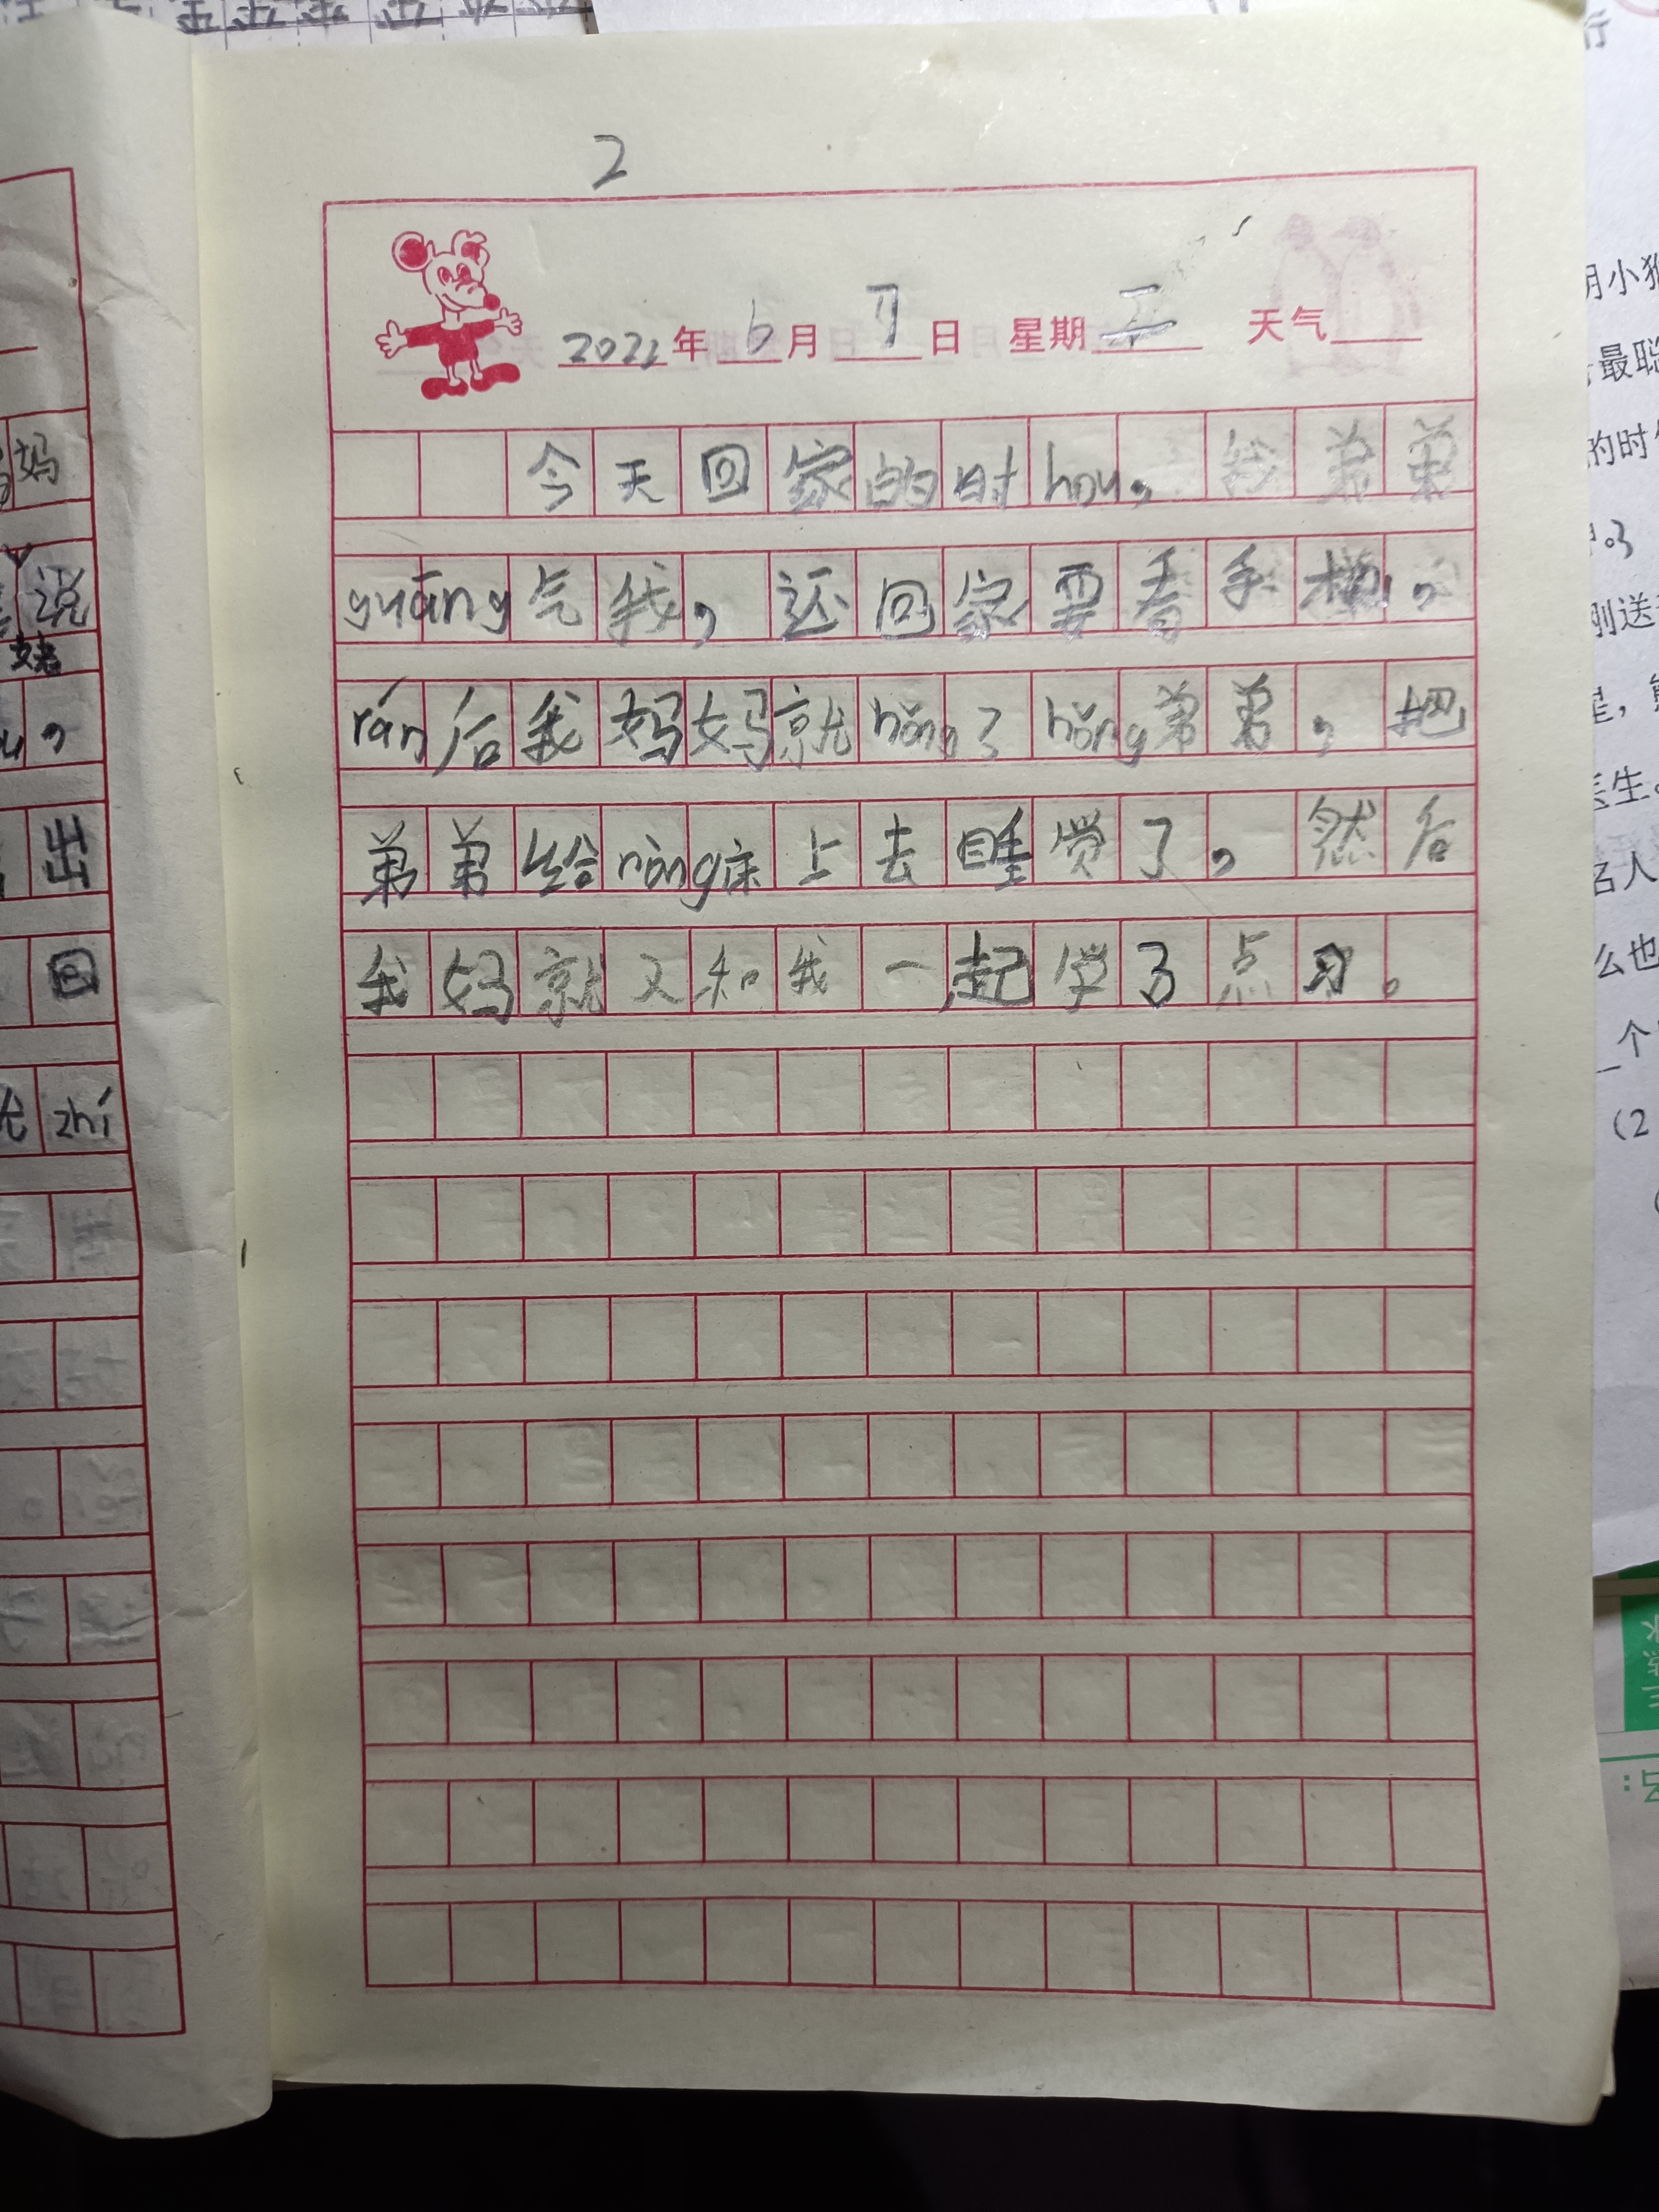 2
2022年6月7日 星期二 天气
今天回家的时hou，我弟弟
guāng气我，还回家要看手机，
rán后我妈妈就hǒng了hǒng弟弟，把
弟弟给ràng床上去睡觉了，然后
我妈就又和我一起学了点习。
妈
说
姥
，
出
回
zhí
行
月小猴
最聪
的时
刚送
星，
医生。
名人
么也
一个
(2